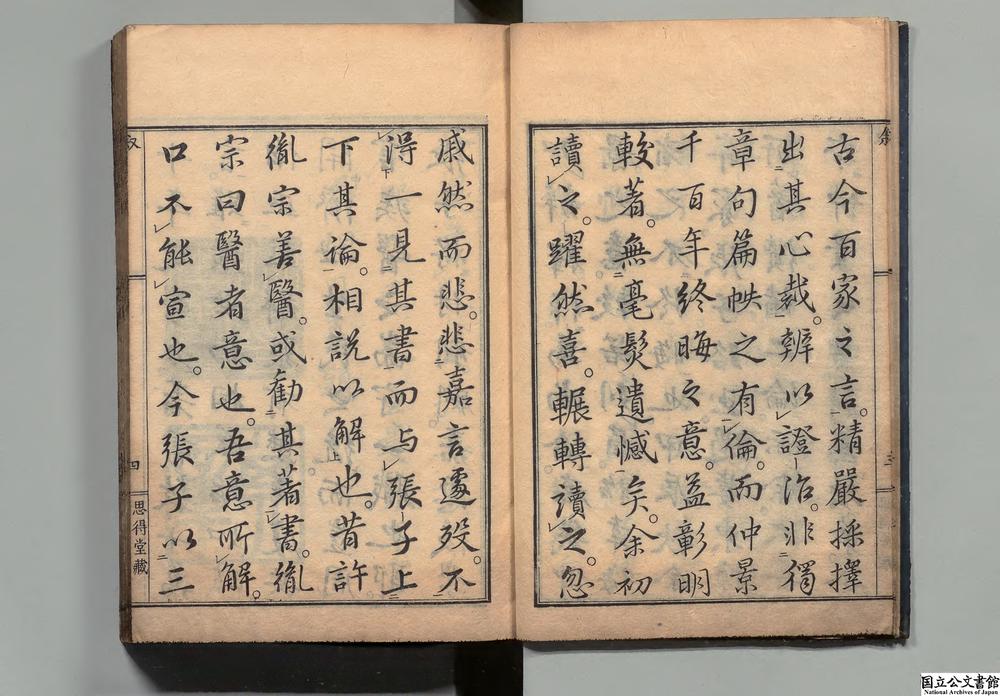 古今百家之言。精嚴採擇
出其心裁。辨以證治。非獨
章句篇帙之有倫。而仲景
千百年終晦之意。益彰明
較著。無毫髮遺憾矣。余初
讀之。躍然喜。輾轉讀之。忽
戚然而悲。悲嘉言遽歿。不
得一見其書而与張子上
下其論。相說以解也。昔許
胤宗善醫。或勸其著書。胤
宗曰醫者意也。吾意所解。
口不能宣也。今張子以三
四
思得堂藏
国立公文書館
National Archives of Japan